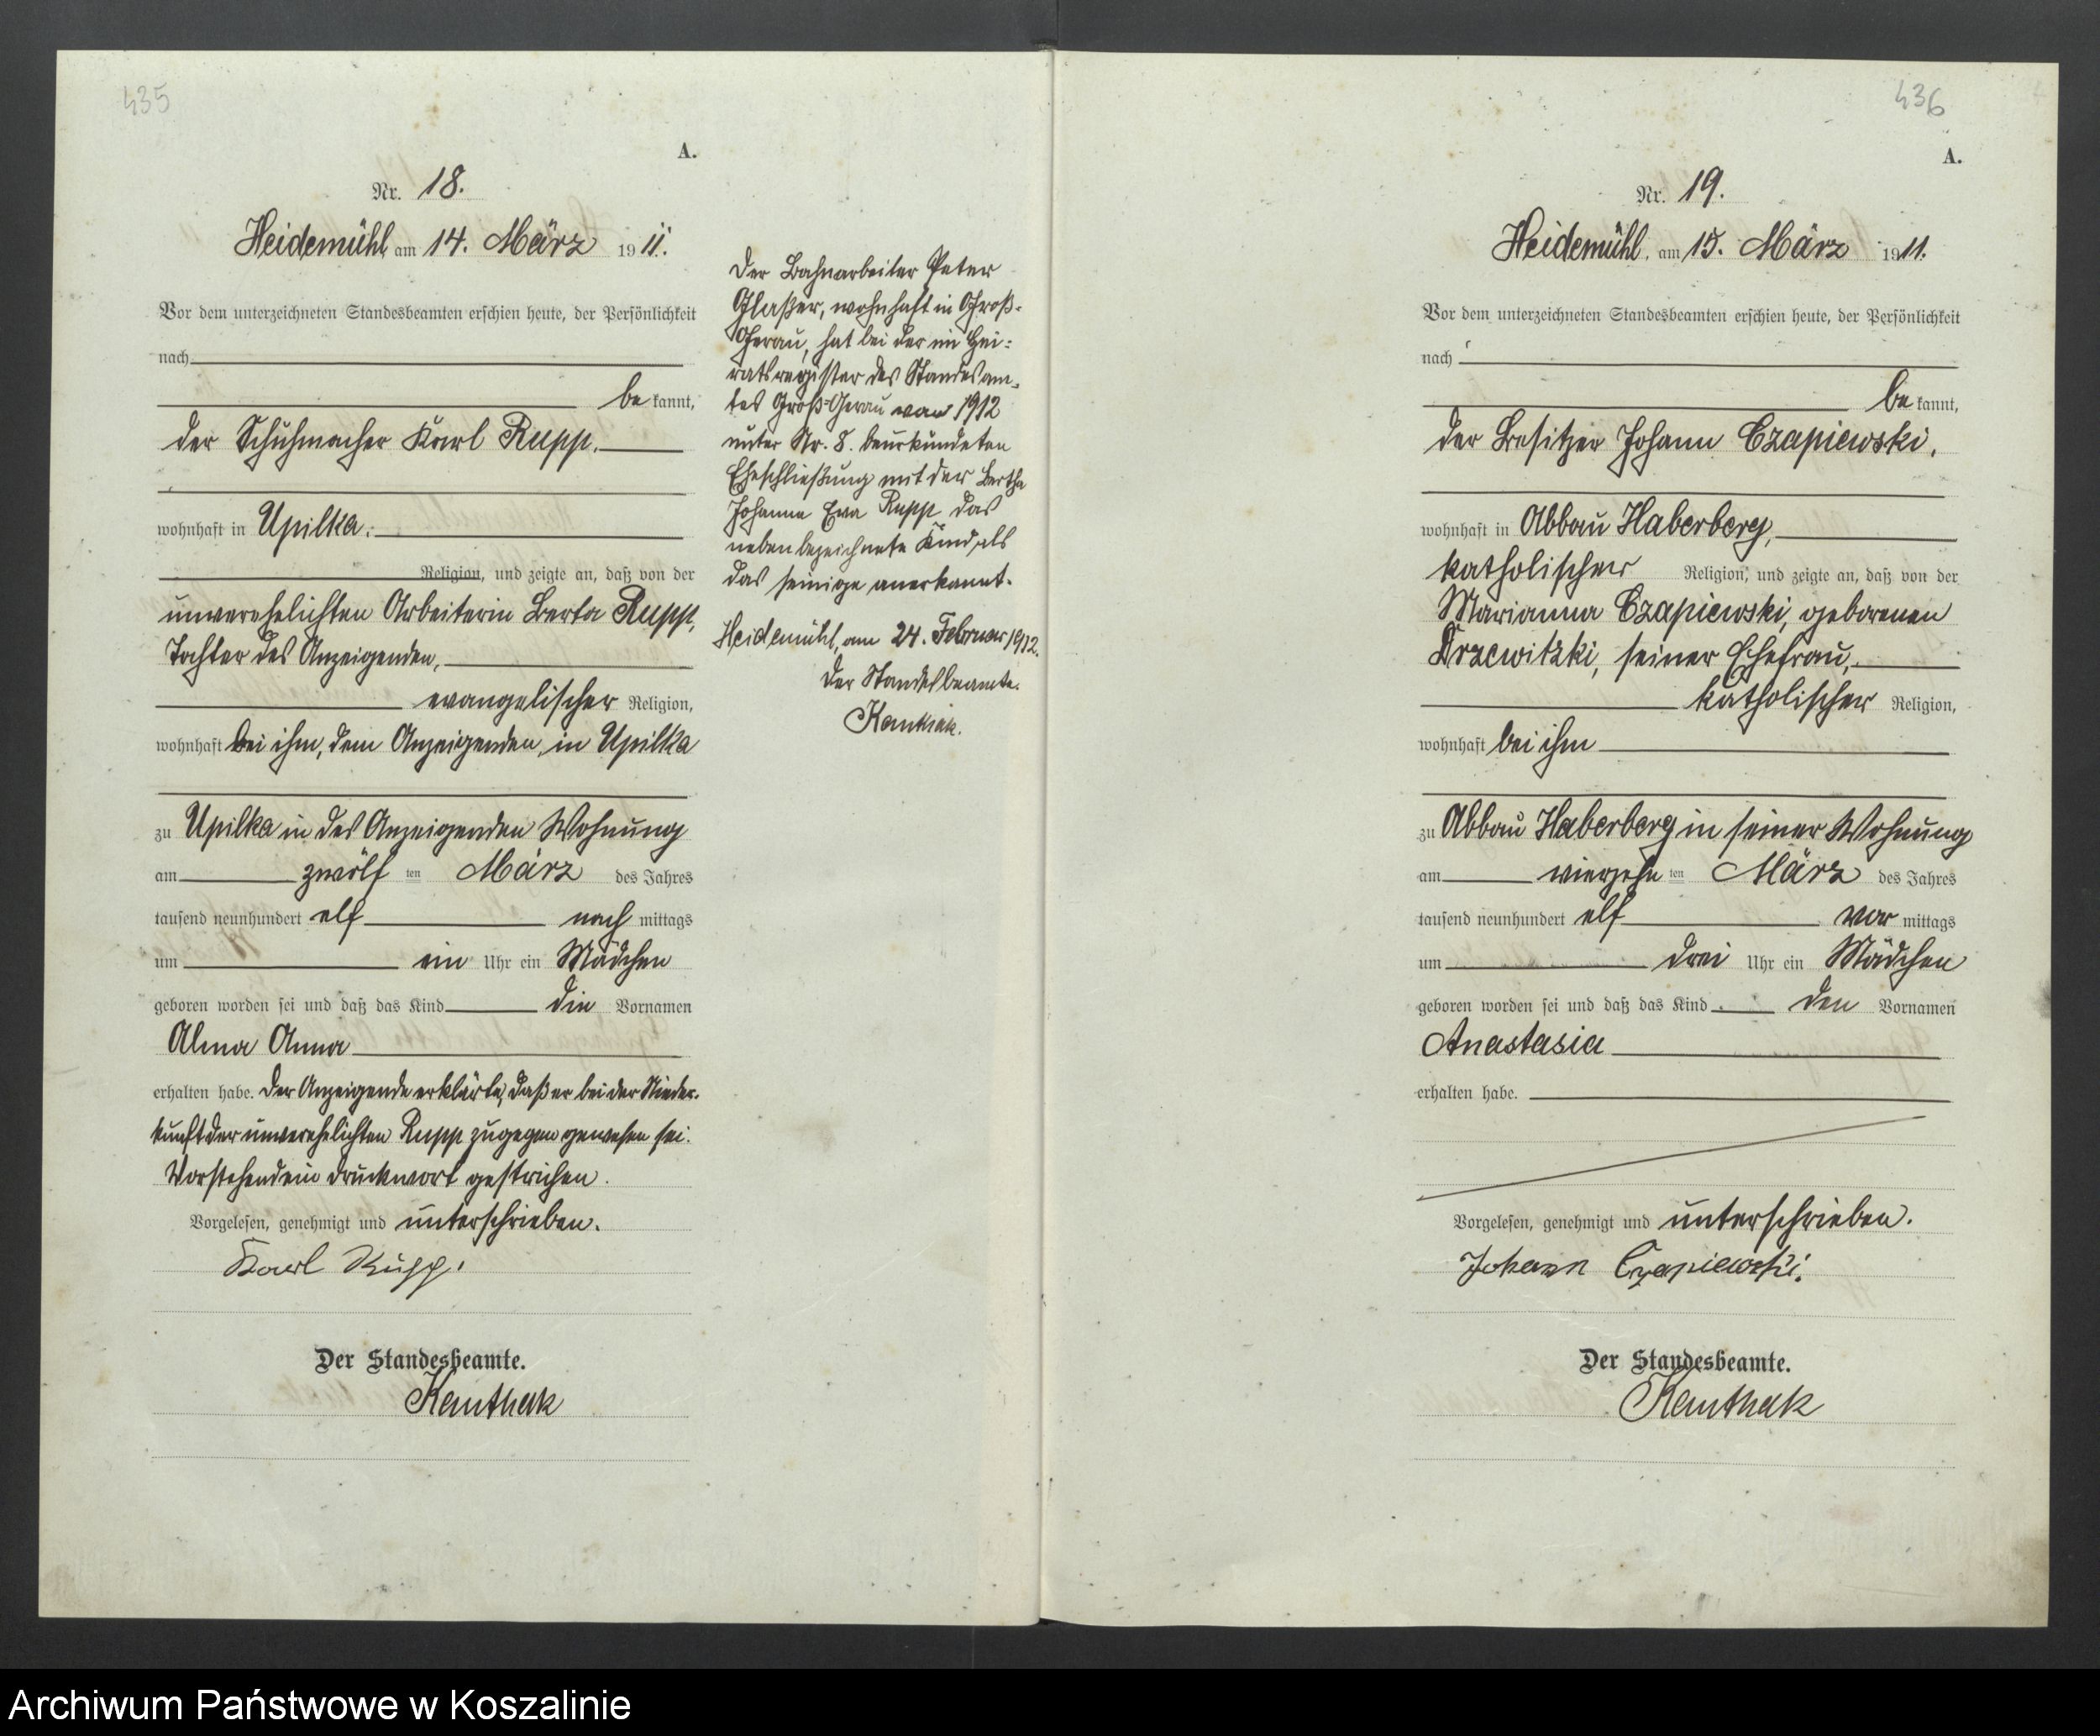 435
A.
Nr. 18.
Heidemühl am 14. März 1911.
Vor dem unterzeichneten Standesbeamten erschien heute, der Persönlichkeit
nach
be kannt,
der Schuhmacher Karl Rupp.
wohnhaft in Upilka.
Religion, und zeigte an, daß von der
unverehelichten Arbeiterin Berta Rupp,
Tochter des Anzeigenden,
evangelischer Religion,
wohnhaft bei ihm, dem Anzeigenden, in Upilka
zu Upilka in des Anzeigenden Wohnung
am zwölf ten März des Jahres
tausend neunhundert elf nach mittags
um ein Uhr ein Mädchen
geboren worden sei und daß das Kind die Vornamen
Alma Anna
erhalten habe. Der Anzeigende erklärte, daß er bei der Nieder-
kunft der unverehelichten Rupp zugegen gewesen sei.
Vorstehend ein Druckwort gestrichen.
Vorgelesen, genehmigt und unterschrieben.
Karl Rupp.
Der Standesbeamte.
Der Bahnarbeiter Peter
Glaßer, wohnhaft in Groß-
Gerau, hat bei der im Hei-
ratsregister des Standesam-
tes Groß-Gerau von 1912
unter Nr. 8. beurkundeten
Eheschließung mit der Bertha
Johanna Eva Rupp das
nebenbezeichnete Kind als
das seinige anerkannt.
Heidemühl, am 24. Februar 1912.
Der Standesbeamte.
436
A.
Nr. 19.
Heidemühl, am 15. März 1911.
Vor dem unterzeichneten Standesbeamten erschien heute, der Persönlichkeit
nach
be kannt,
der Besitzer Johann Czapiewski,
wohnhaft in Abbau Haberberg,
katholischer Religion, und zeigte an, daß von der
Marianna Czapiewski, geborenen
seiner Ehefrau,
katholischer Religion,
wohnhaft bei ihm
zu Abbau Haberberg in seiner Wohnung
am vierzehn ten März des Jahres
tausend neunhundert elf vor mittags
um drei Uhr ein Mädchen
geboren worden sei und daß das Kind den Vornamen
Anastasia
erhalten habe.
Vorgelesen, genehmigt und unterschrieben.
Johann Czapiewski.
Der Standesbeamte.
Archiwum Państwowe w Koszalinie